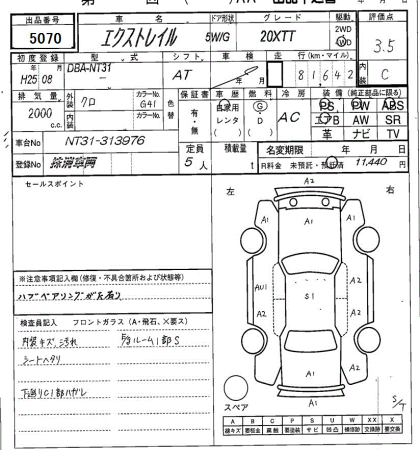 出品番号 車名 ドア形状 グレード 駆動 評価点
5070 エクストレイル 5W/G 20XTT 2WD WD 3.5
初度登録 型式 シフト 車検 走行(km・マイル) 内装
H25 08 DBA-NT31 AT 年 月 81642 C
排気量 外装 クロ カラーNo. G41 色替 保証書 車歴 燃料 冷房 装備(純正部品に限る)
2000 c.c. 内装 カラーNo. 有・無 自家用 G AC PS PW ABS
レンタ D エアB AW SR
( ) ( ) 革 ナビ TV
車台No NT31-313976
定員 積載量 名変期限 年 月 日
登録No 抹消車両 5人 t R料金 未預託・預託済 11,440 円
セールスポイント
左 右
A2
A1 A1 A1
A2
AU1 S1 A2
A2 A2
A1 A1
A2
A1
スペア
S/T
※注意事項記入欄(修復・不具合箇所および状態等)
ハブベアリングガタ有り
検査員記入 フロントガラス(A・飛石、×要ス)
内装キズ汚れ
シートヘタリ
A B C P S U W X XX X
線キズ 腐食 要塗装 サビ 凹凸 補修跡 交換跡 要交換